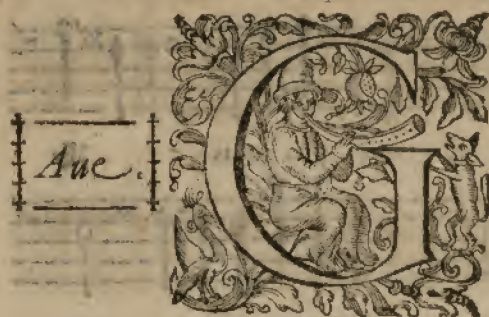 Aue.
G